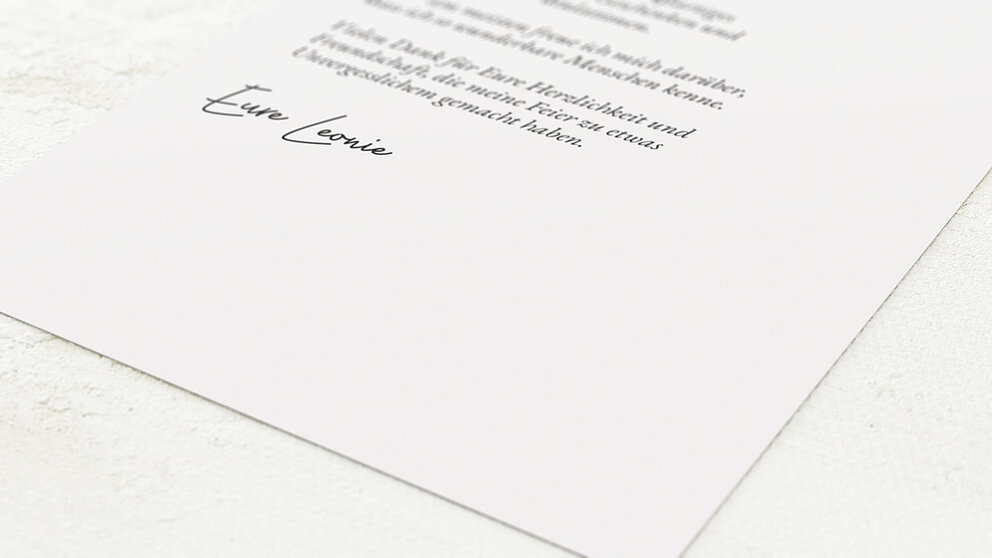 und
meisten freue ich mich darüber,
dass ich so wunderbare Menschen kenne.
Vielen Dank für Eure Herzlichkeit und
Freundschaft, die meine Feier zu etwas
Unvergesslichem gemacht haben.
Eure Leonie